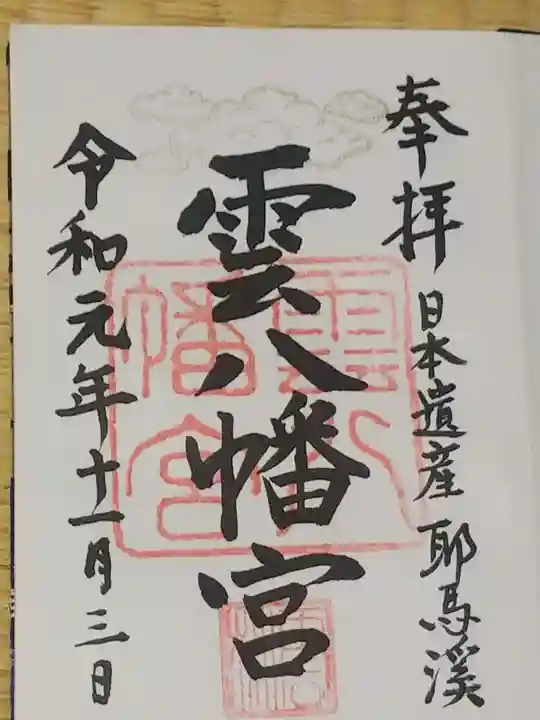 奉拝
日本遺産 耶馬溪
雲八幡宮
令和元年十一月三日
雲八幡宮